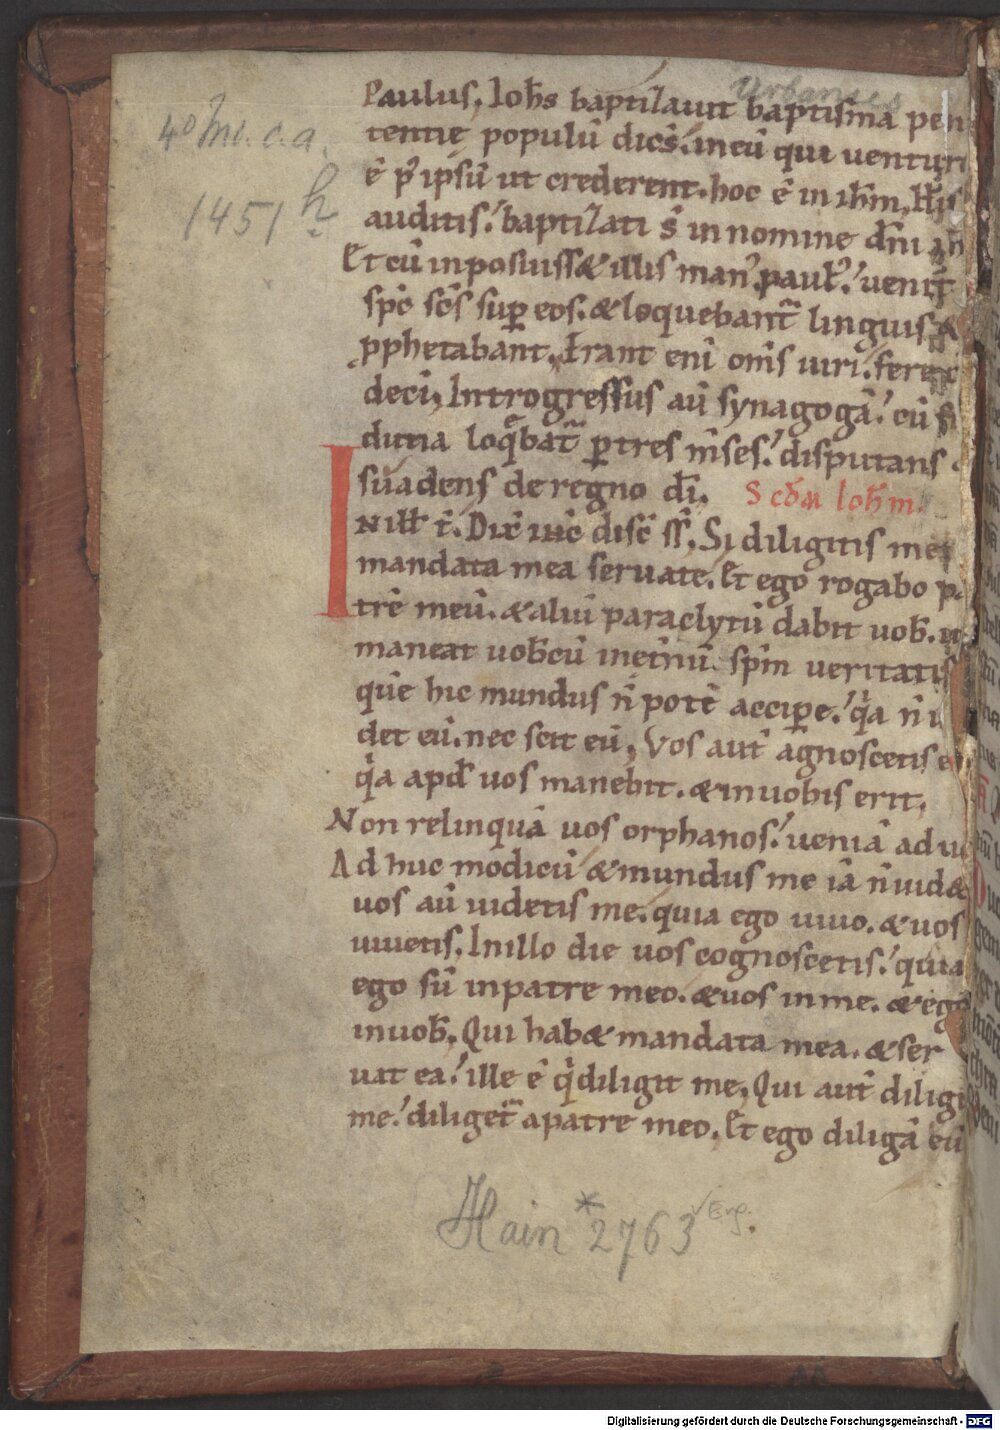 Urbanses
4° Inc. c. a.
1451 h
Paulus. Ioħs baptizauit baptisma pen
tentię populū dicēs. in eū qui uentur
ē p̄ ipsū ut crederent. hoc ē in ihm̄. His
auditis. baptizati sꝫ in nomine dn̄i ih
Et cū inposuiss& illis man᷒ paul᷒. uenit
sp̄c sc̄s suꝑ eos. & loquebant᷑ linguis &
ꝓphetabant. Erant enī om̄s uiri. fere
decī. Introgressus aū synagogā. cū fi
ducia loq̄bat᷑ ꝑ tres m̄ses. disputans.
suadens de regno dī. Scd̄m Ioħm.
IN ILL̄ T̄. Dix̄ ih̄c disc̄ s̄. Si diligitis me
mandata mea seruate. Et ego rogabo pa
trē meū. & aliū paraclytū dabit uob̄. ut
maneat uob̄cū inet̄nū. sp̄m ueritatis
quē hic mundus n̄ potē acciꝑe. q̇a n̄ ui
det eū. nec scit eū. Vos aut̄ agnoscetis e
q̇a apd̄ uos manebit. & in uobis erit.
Non relinquā uos orphanos. ueniā ad uo
Ad huc modicū & mundus me iā n̄ uid&
uos aū uidetis me. quia ego uiuo. & uos
uiuetis. In illo die uos cognoscetis. quia
ego sū in patre meo. & uos in me. & ego
in uob̄. Qui hab& mandata mea. & ser
uat ea. ille ē q̇ diligit me. Qui aut̄ diligi
me. diliget᷑ a patre meo. Et ego diligā eū
Hain * 2763
Digitalisierung gefördert durch die Deutsche Forschungsgemeinschaft - DFG